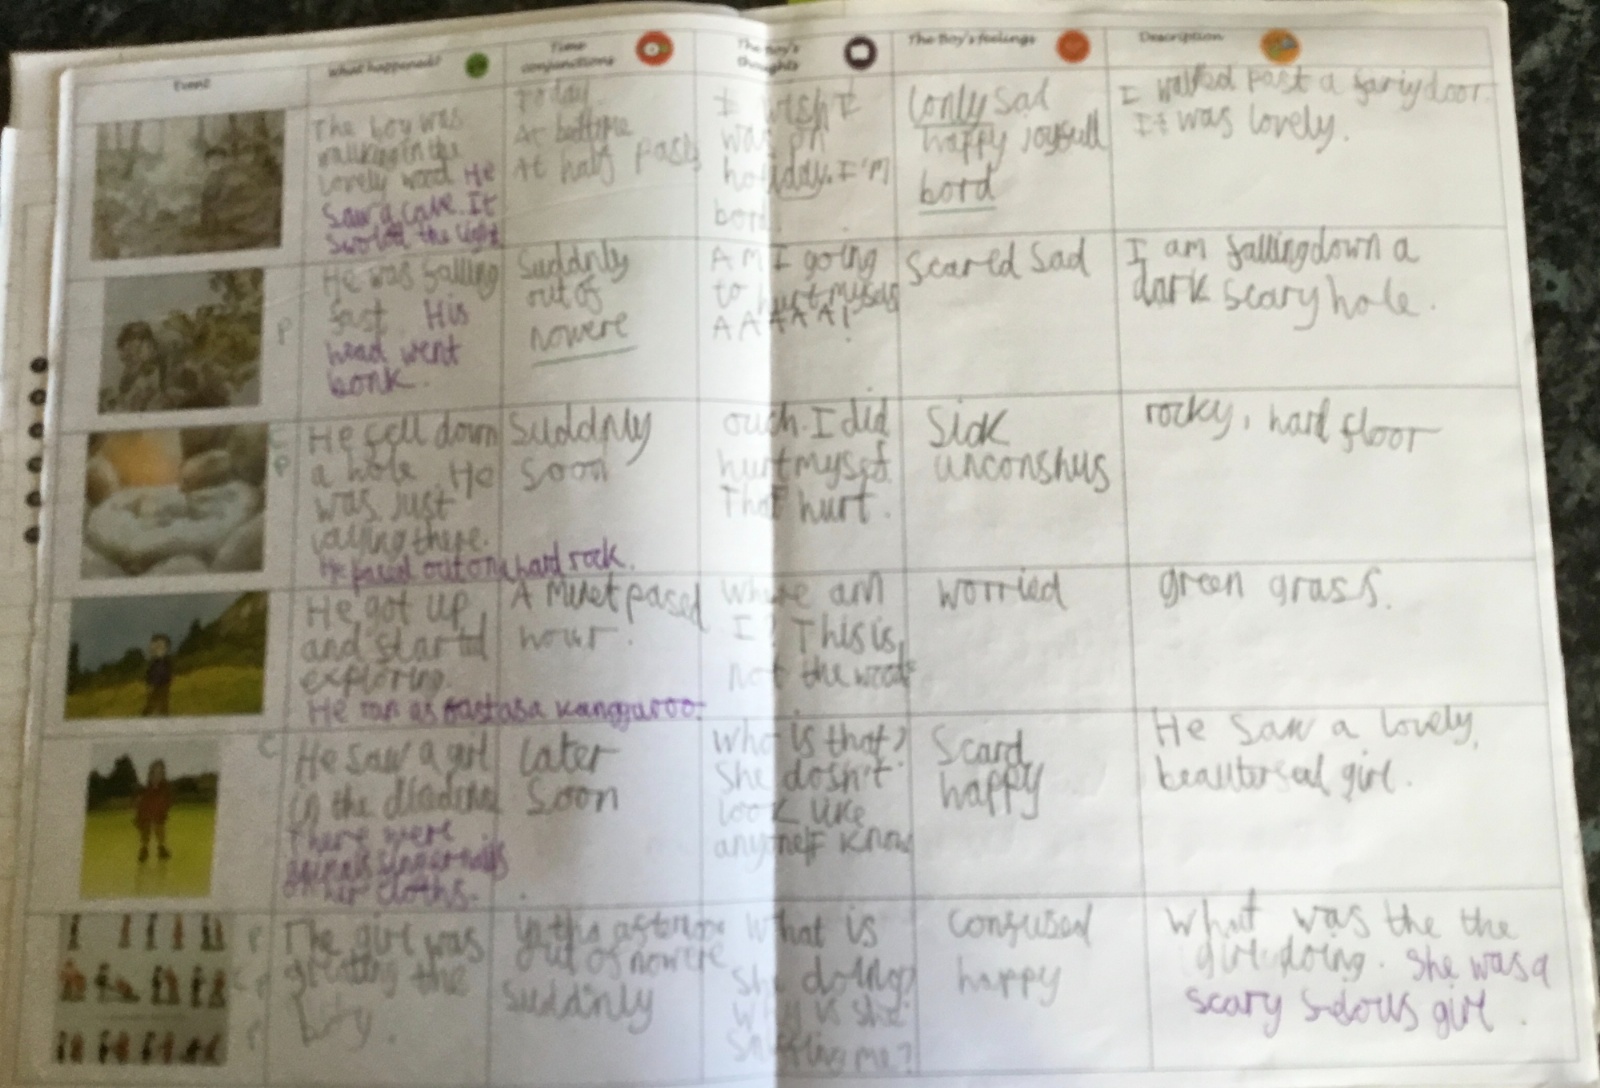 Event
What happened?
Time
conjunctions
The Boy's
thoughts
The Boy's feelings
Description
The boy was
walking in the
lovely wood He
saw a cave. It
the light
Today
At
At half past
I wish I
was on
holiday. I'm
bord.
lonly sad
happy joyfull
bord
I walked past a
It was lovely.
He was falling
fast His
head went
bonk.
Suddnly
out of
nowere
Am I going
to hurt
AAAAA!
Scared Sad
I am falling down a
dark scary hole.
He fell down
a hole. He
was just
laying there.
He pased out on a hard rock.
Suddnly
Soon
ouch. I did
hurt myself
That hurt.
Sick
unconshus
rocky, hard floor
He got up
and started
exploring.
He ran as fast as a kangguroo.
A minet pased
hour.
Where am
I? This is
not the woods
worried
green grass.
He saw a girl
in the
There were
on her cloths.
Later
Soon
Who is that?
She dosn't
look like
Scard
happy
He saw a lovely,
girl.
The girl was
greating the
boy.
In the
out of nowere
Suddinly
What is
she doing?
Why is she
me?
confused
happy
What was the the
girl doing. She was a
scary girl.